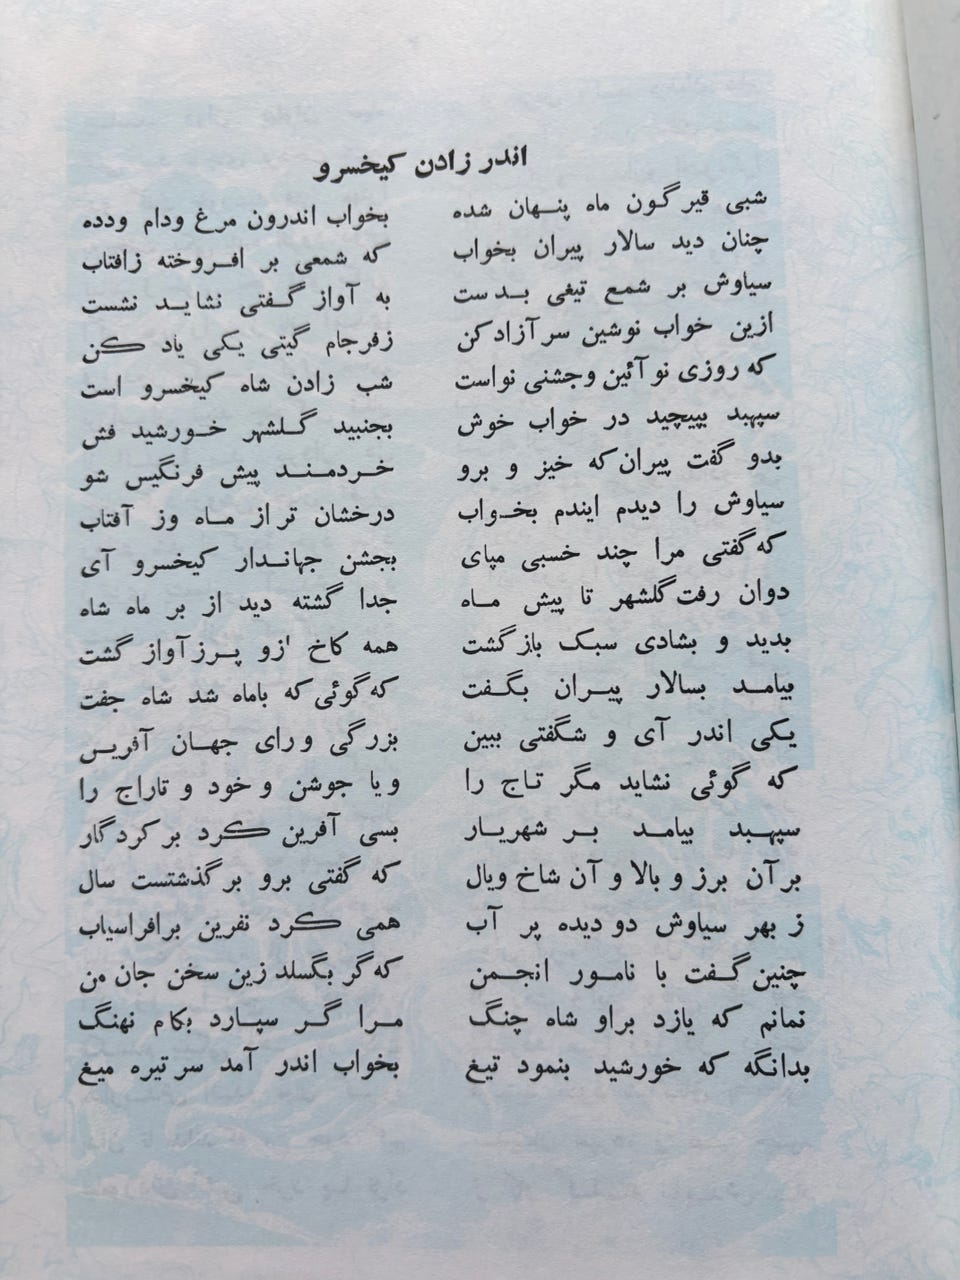 اندر زادن کیخسرو
شبی قیرگون ماه پنهان شده بخواب اندرون مرغ ودام ودده
چنان دید سالار پیران بخواب که شمعی بر افروخته زافتاب
سیاوش بر شمع تیغی بدست به آواز گفتی نشاید نشست
ازین خواب نوشین سر آزادکن زفرجام گیتی یکی یاد کن
که روزی نو آئین وجشنی نواست شب زادن شاه کیخسرو است
سپهبد بپیچید در خواب خوش بجنبید گلشهر خورشید فش
بدو گفت پیران که خیز و برو خردمند پیش فرنگیس شو
سیاوش را دیدم ایندم بخواب درخشان تر از ماه وز آفتاب
که گفتی مرا چند خسبی مپای بجشن جهاندار کیخسرو آی
دوان رفت گلشهر تا پیش ماه جدا گشته دید از بر ماه شاه
بدید و بشادی سبک بازگشت همه کاخ ازو پرزآواز گشت
بیامد بسالار پیران بگفت که گوئی که باماه شد شاه جفت
یکی اندر آی و شگفتی ببین بزرگی ورای جهان آفرین
که گوئی نشاید مگر تاج را ویا جوشن وخود و تاراج را
سپهبد بیامد بر شهریار بسی آفرین کرد بر کردگار
بر آن برز و بالا و آن شاخ ویال که گفتی برو بر گذشتست سال
ز بهر سیاوش دو دیده پر آب همی کرد نفرین برافراسیاب
چنین گفت با نامور انجمن که گر بگسلد زین سخن جان من
نمانم که یازد براو شاه چنگ مرا گر سپارد بکام نهنگ
بدانگه که خورشید بنمود تیغ بخواب اندر آمد سر تیره میغ